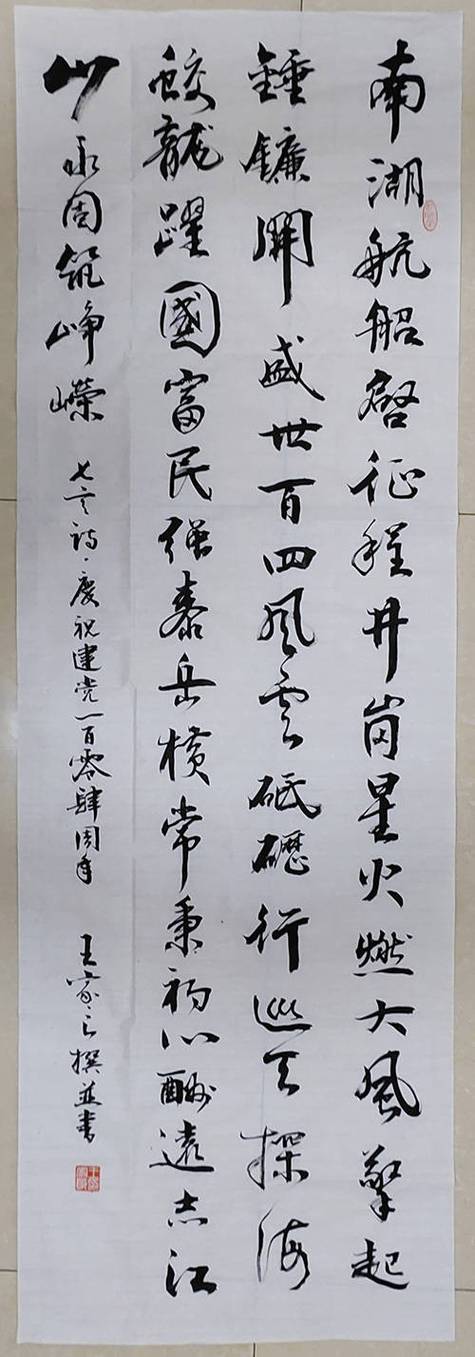 南湖航船啓征程井崗星火燃大風擎起
錘鐮開盛世百四風雲砥礪行巡天探海
蛟龍躍國富民強泰岳橫常秉初心酬遠志江
山永固筑崢嶸
七言詩·慶祝建党一百零肆周年
王家之撰並書